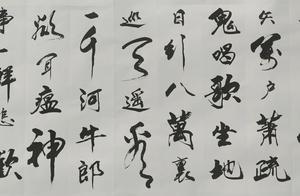 矢萬户蕭疏
鬼唱歌坐地
日行八萬裏
巡天遥看
一千河牛郎
欲问瘟神
事一样悲歡